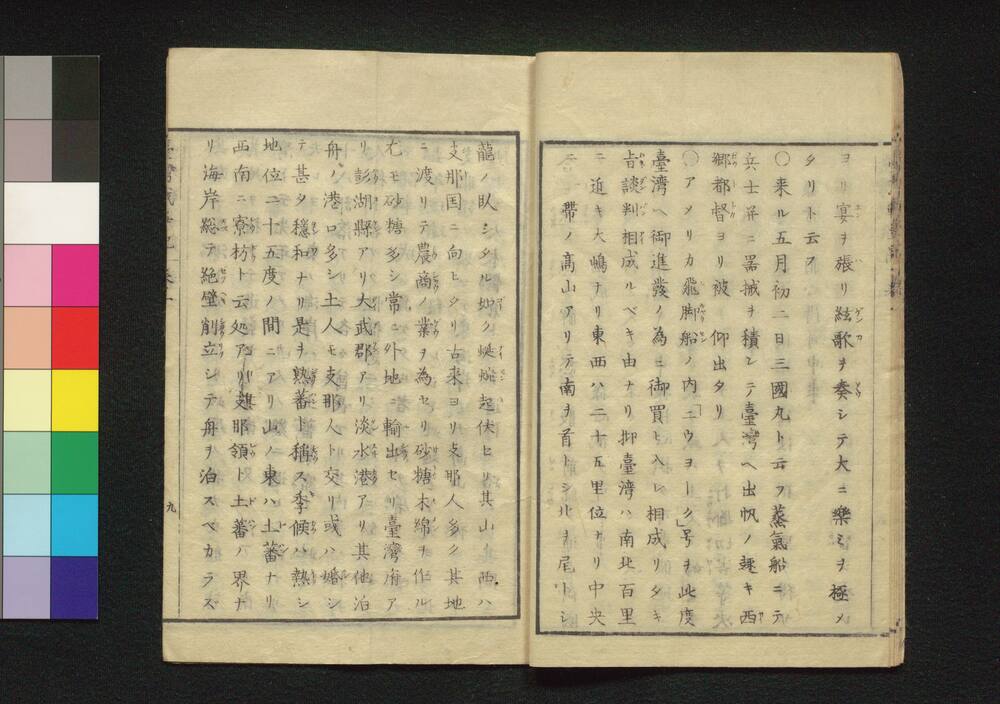 ヨリ宴ヲ張リ絃歌ヲ奏シテ大ニ樂ミヲ極メ
タリト云フ
〇来ル五月初二日三國丸ト云フ蒸氣船ニテ
兵士并ニ器械ヲ積ミテ臺灣ヘ出帆ノ趣キ西
郷都督ヨリ被仰出タリ
〇アメリカ飛脚船ノ内「ニウヨーク」号ヲ此度
臺灣ヘ御進發ノ為ニ御買上入レ相成リタキ
旨談判相成ルベキ由ナリ抑臺灣ハ南北百里
ニ近キ大嶋ナリ東西ハ二十五里位ナリ中央
ニ一帶ノ高山アリテ南ヲ首トシ北ヲ尾トシ
龍ノ臥シタル如ク蜒蜿起伏セリ其山ノ西ハ
支那国ニ向ヒタリ古来ヨリ支那人多ク其地
ニ渡リテ農商ノ業ヲ為セリ砂糖木綿ヲ作ル
尤モ砂糖多シ常ニ外地ニ輸出セリ臺灣府ア
リ彭湖縣アリ大武郡アリ淡水港アリ其他泊
舟ノ港口多シ土人モ支那人ト交リ或ハ婚シ
テ甚タ穏和ナリ是ヲ熟蕃ト稱ス季候ハ熱シ
地位二十五度ノ間ニアリ山ノ東ハ土蕃ナリ
西南ニ寮枋ト云処アリ支那領ト土蕃ノ界ナ
リ海岸総テ絶壁削立シテ舟ヲ泊スベカラズ
九